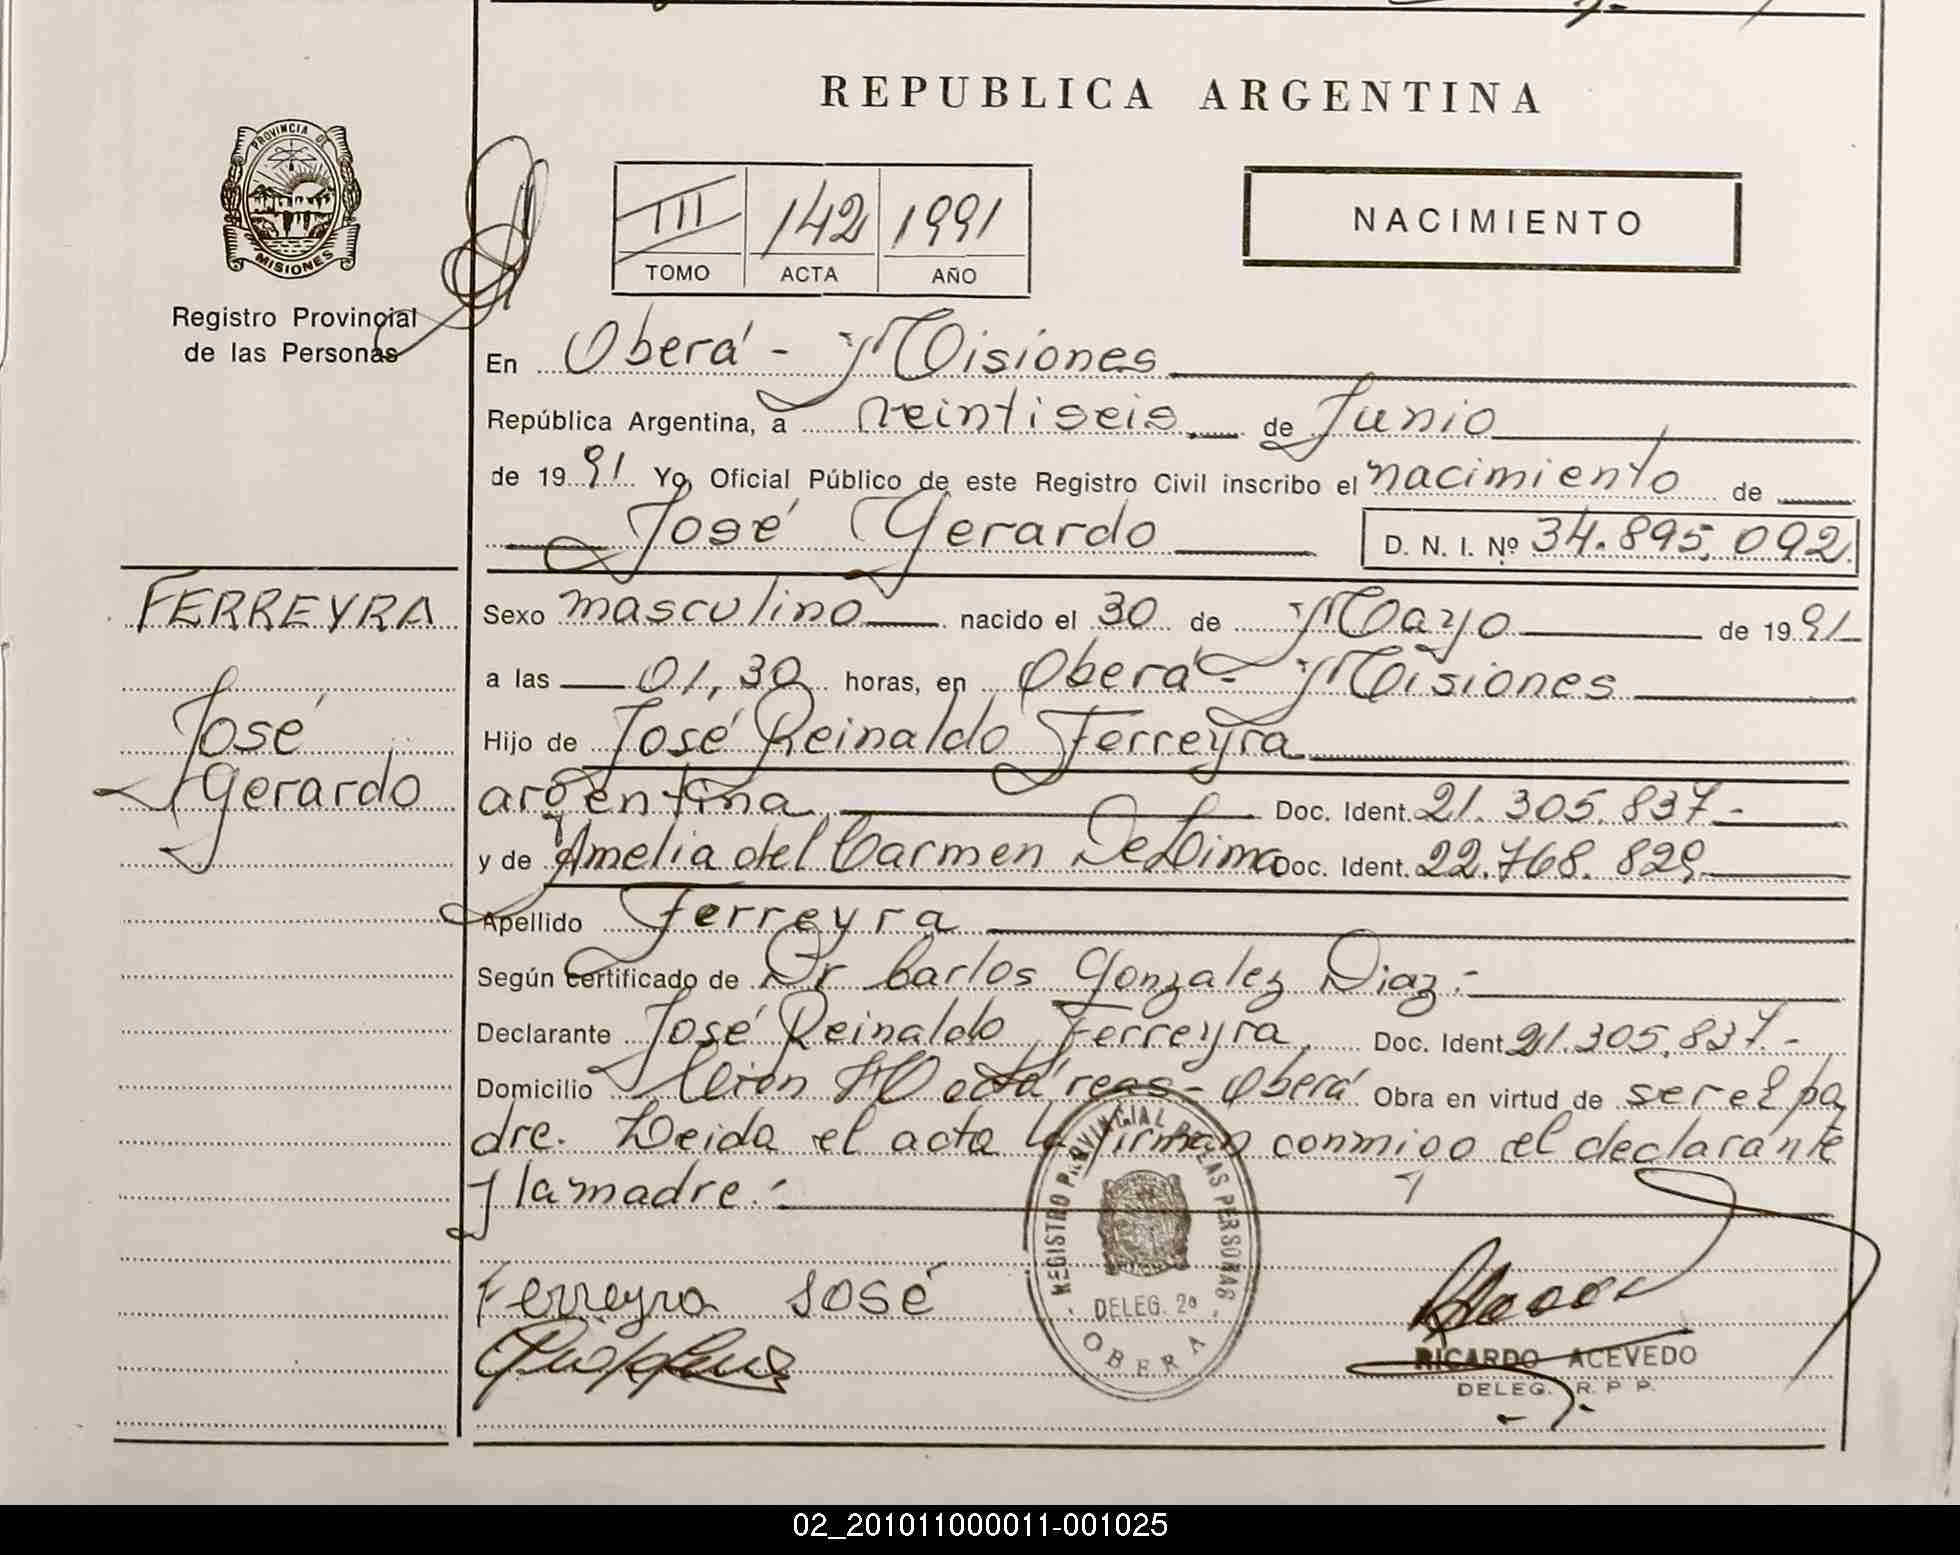 REPUBLICA ARGENTINA
PROVINCIA DE
MISIONES
Registro Provincial
de las Personas
III 142 1991
TOMO ACTA AÑO
NACIMIENTO
En Oberá - Misiones
República Argentina, a veintiseis de Junio
de 1991 Yo, Oficial Público de este Registro Civil inscribo el nacimiento de
José Gerardo D. N. I. Nº 34.895.092
FERREYRA
José
Gerardo
Sexo masculino nacido el 30 de Mayo de 1991
a las 01,30 horas, en Oberá - Misiones
Hijo de José Reinaldo Ferreyra
argentina Doc. Ident. 21.305.837.-
y de Amelia del Carmen De Lima Doc. Ident. 22.768.829
Apellido Ferreyra
Según certificado de Dr Carlos Gonzalez Diaz.-
Declarante José Reinaldo Ferreyra Doc. Ident. 21.305.837.-
Domicilio Hectáreas - Oberá Obra en virtud de ser el pa
dre. Leida el acta la firman conmigo el declarante
y la madre.-
Ferreyra José
REGISTRO PROVINCIAL DE LAS PERSONAS
DELEG. 2a
OBERA
RICARDO ACEVEDO
DELEG. R. P. P.
02_201011000011-001025